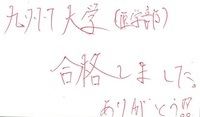 九州大学(医学部)
合格しました。
ありがとう!!